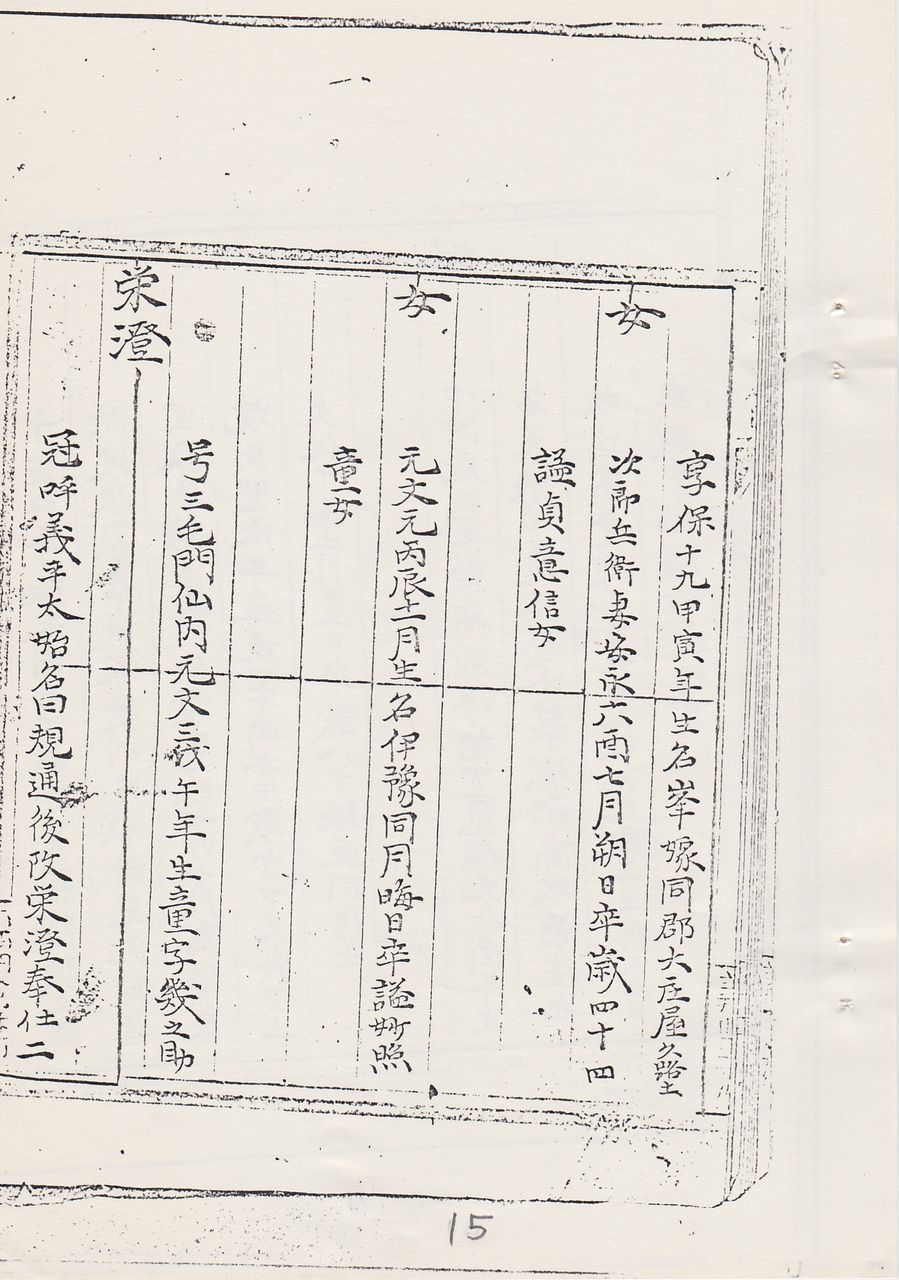 女
享保十九甲寅年生名峯嫁同郡大庄屋久
次郎兵衛妻安永六酉七月朔日卒歳四十四
謚貞意信女
女
元文元丙辰十二月生名伊豫同月晦日卒謚妙照
童女
栄澄
号三毛門仙内元文三戊午年生童字幾之助
冠呼義平太始名曰規通後改栄澄奉仕二
15